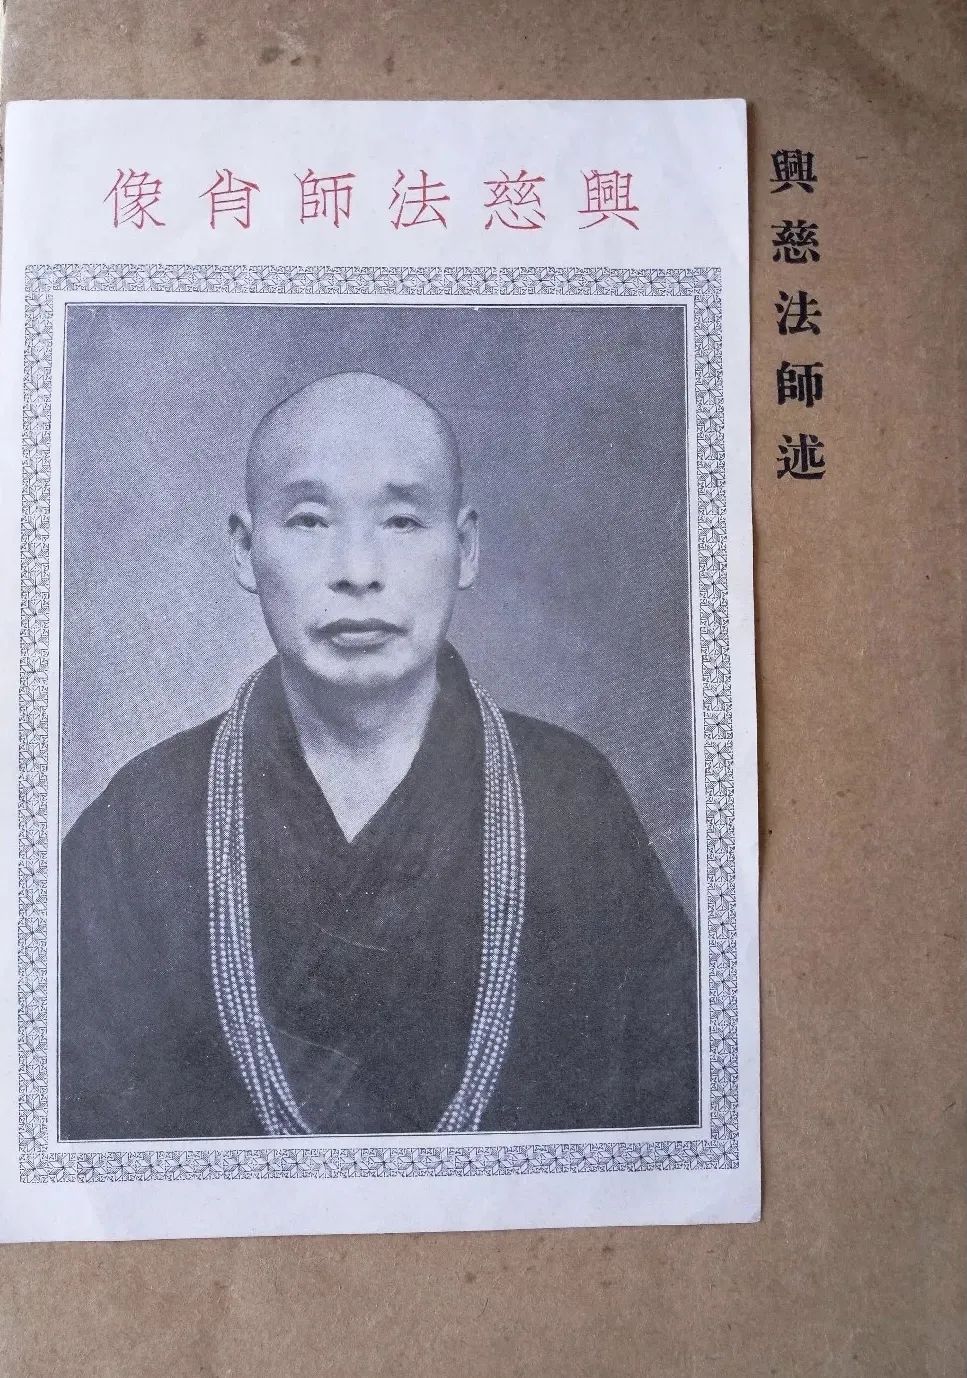 興慈法師肖像
興慈法師述